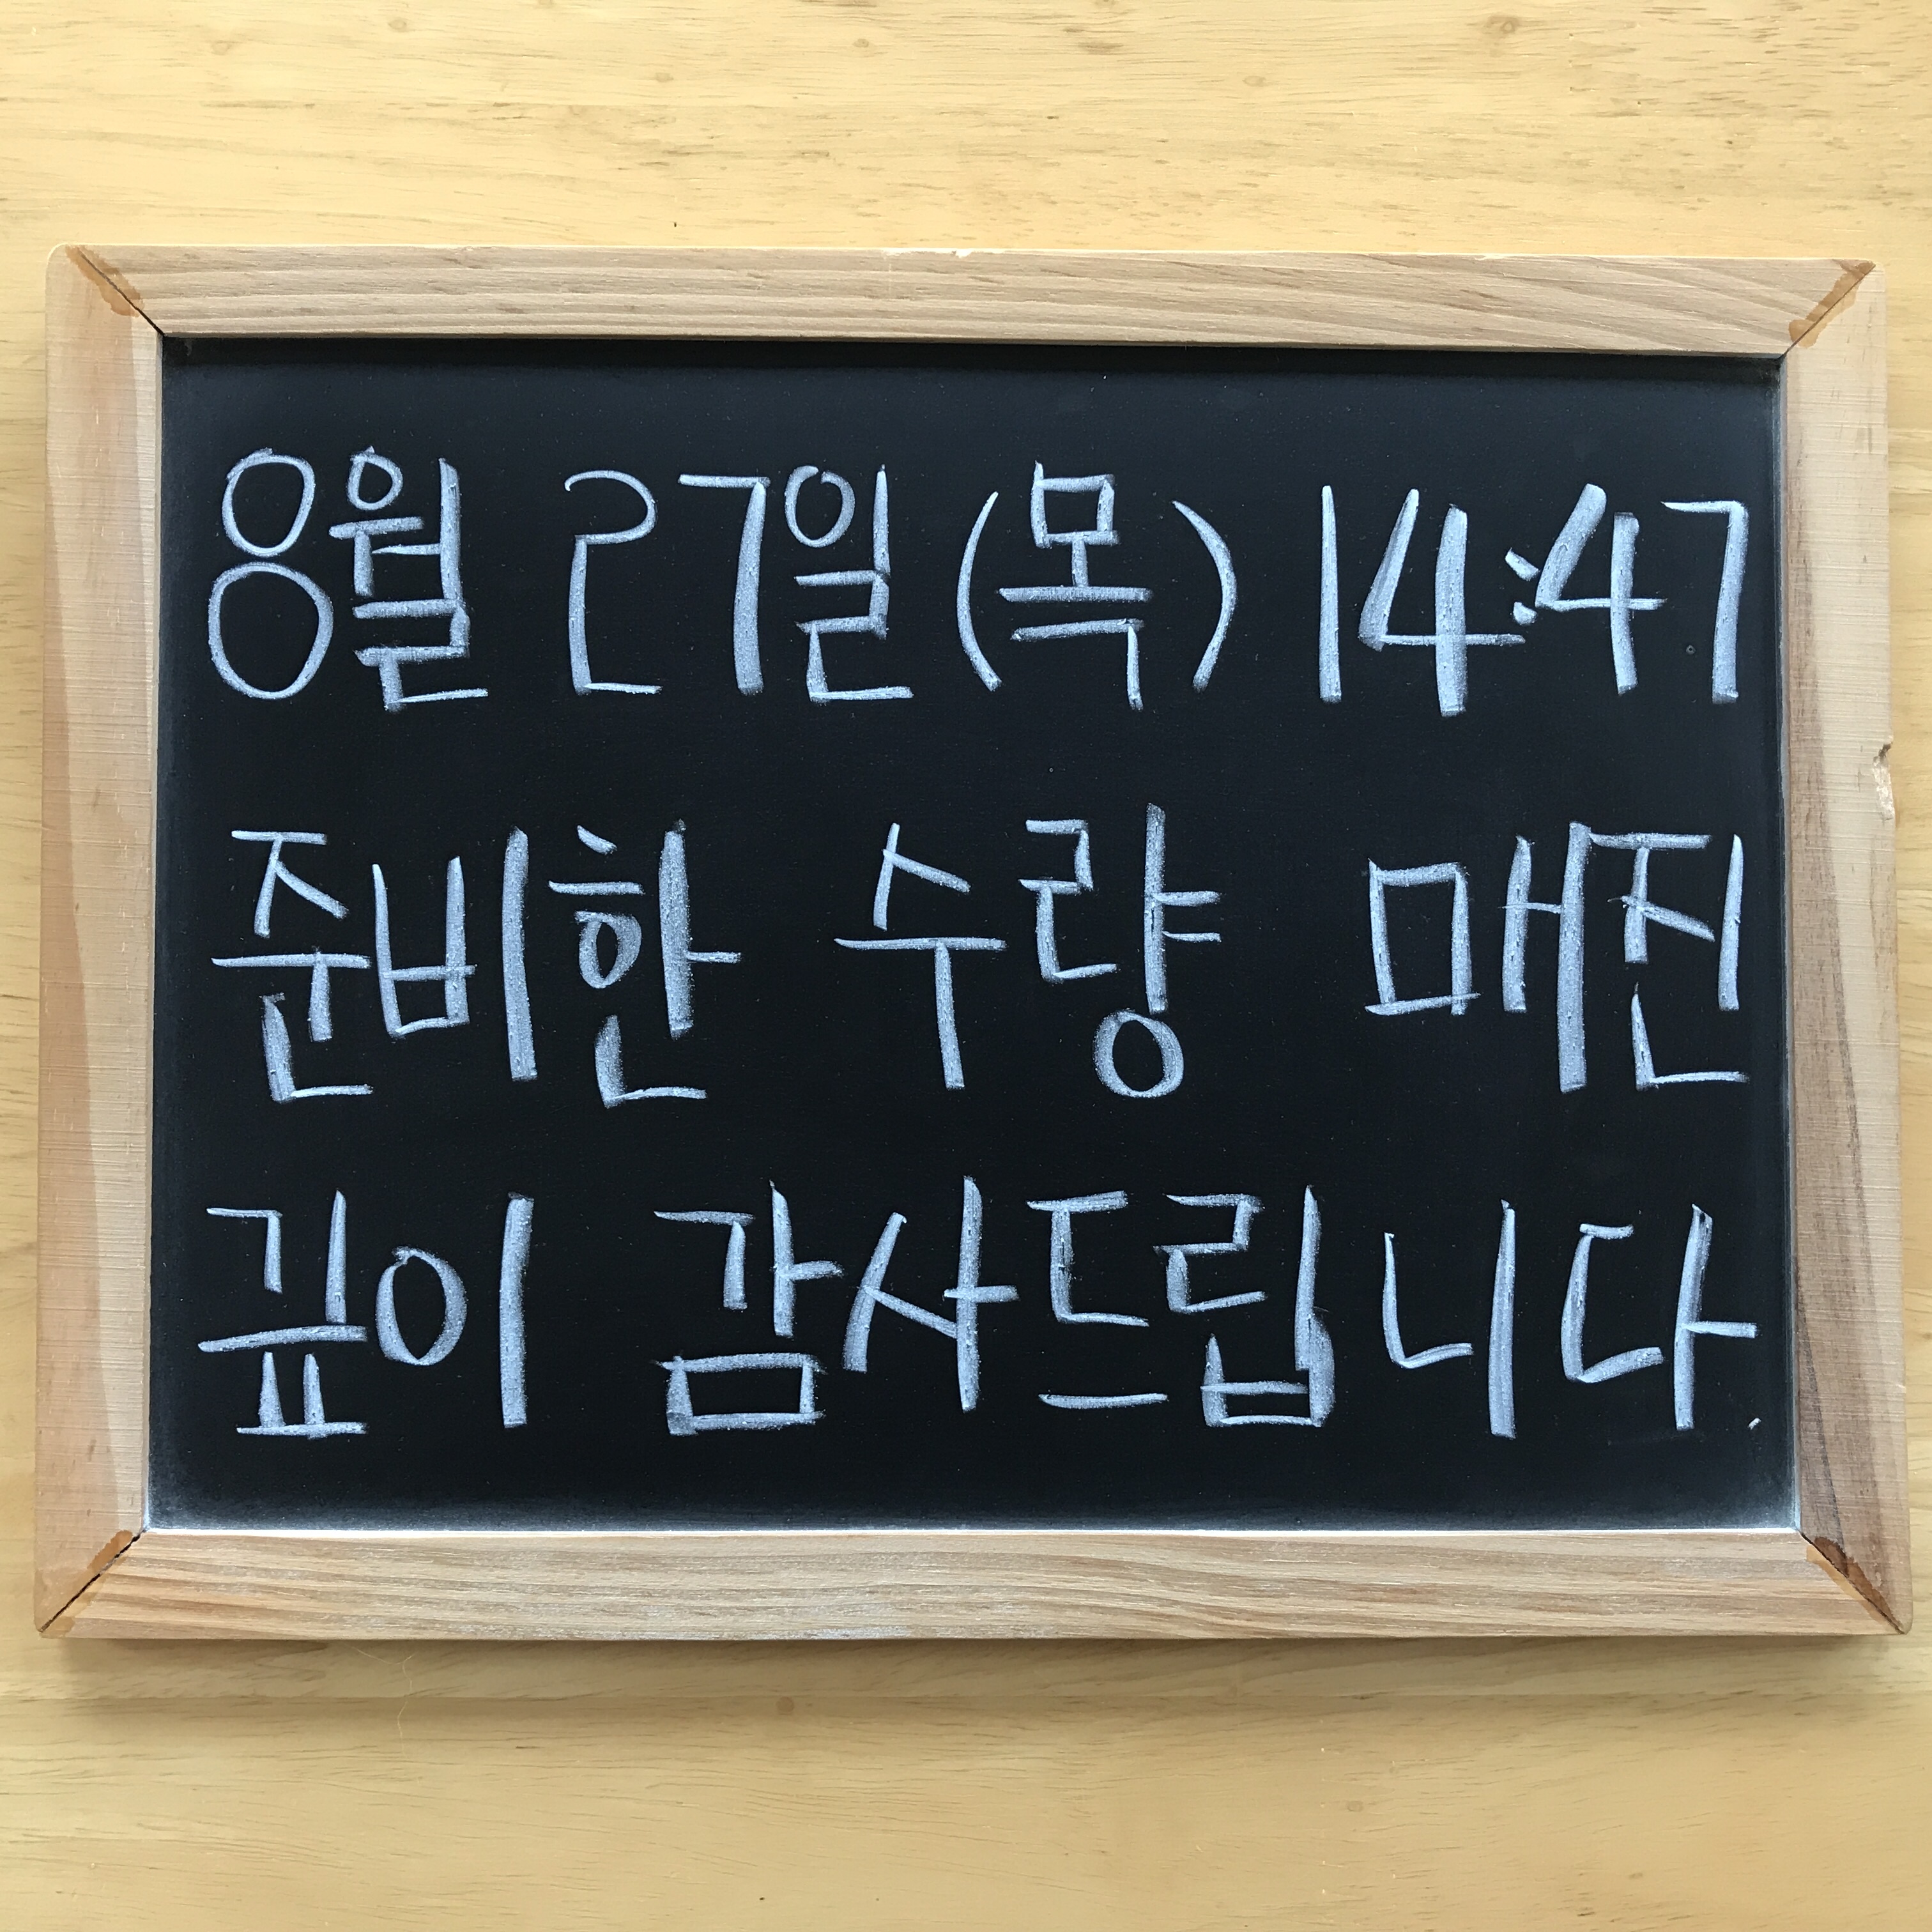 8월 27일(목) 14:47
준비한 수량 매진
깊이 감사드립니다.